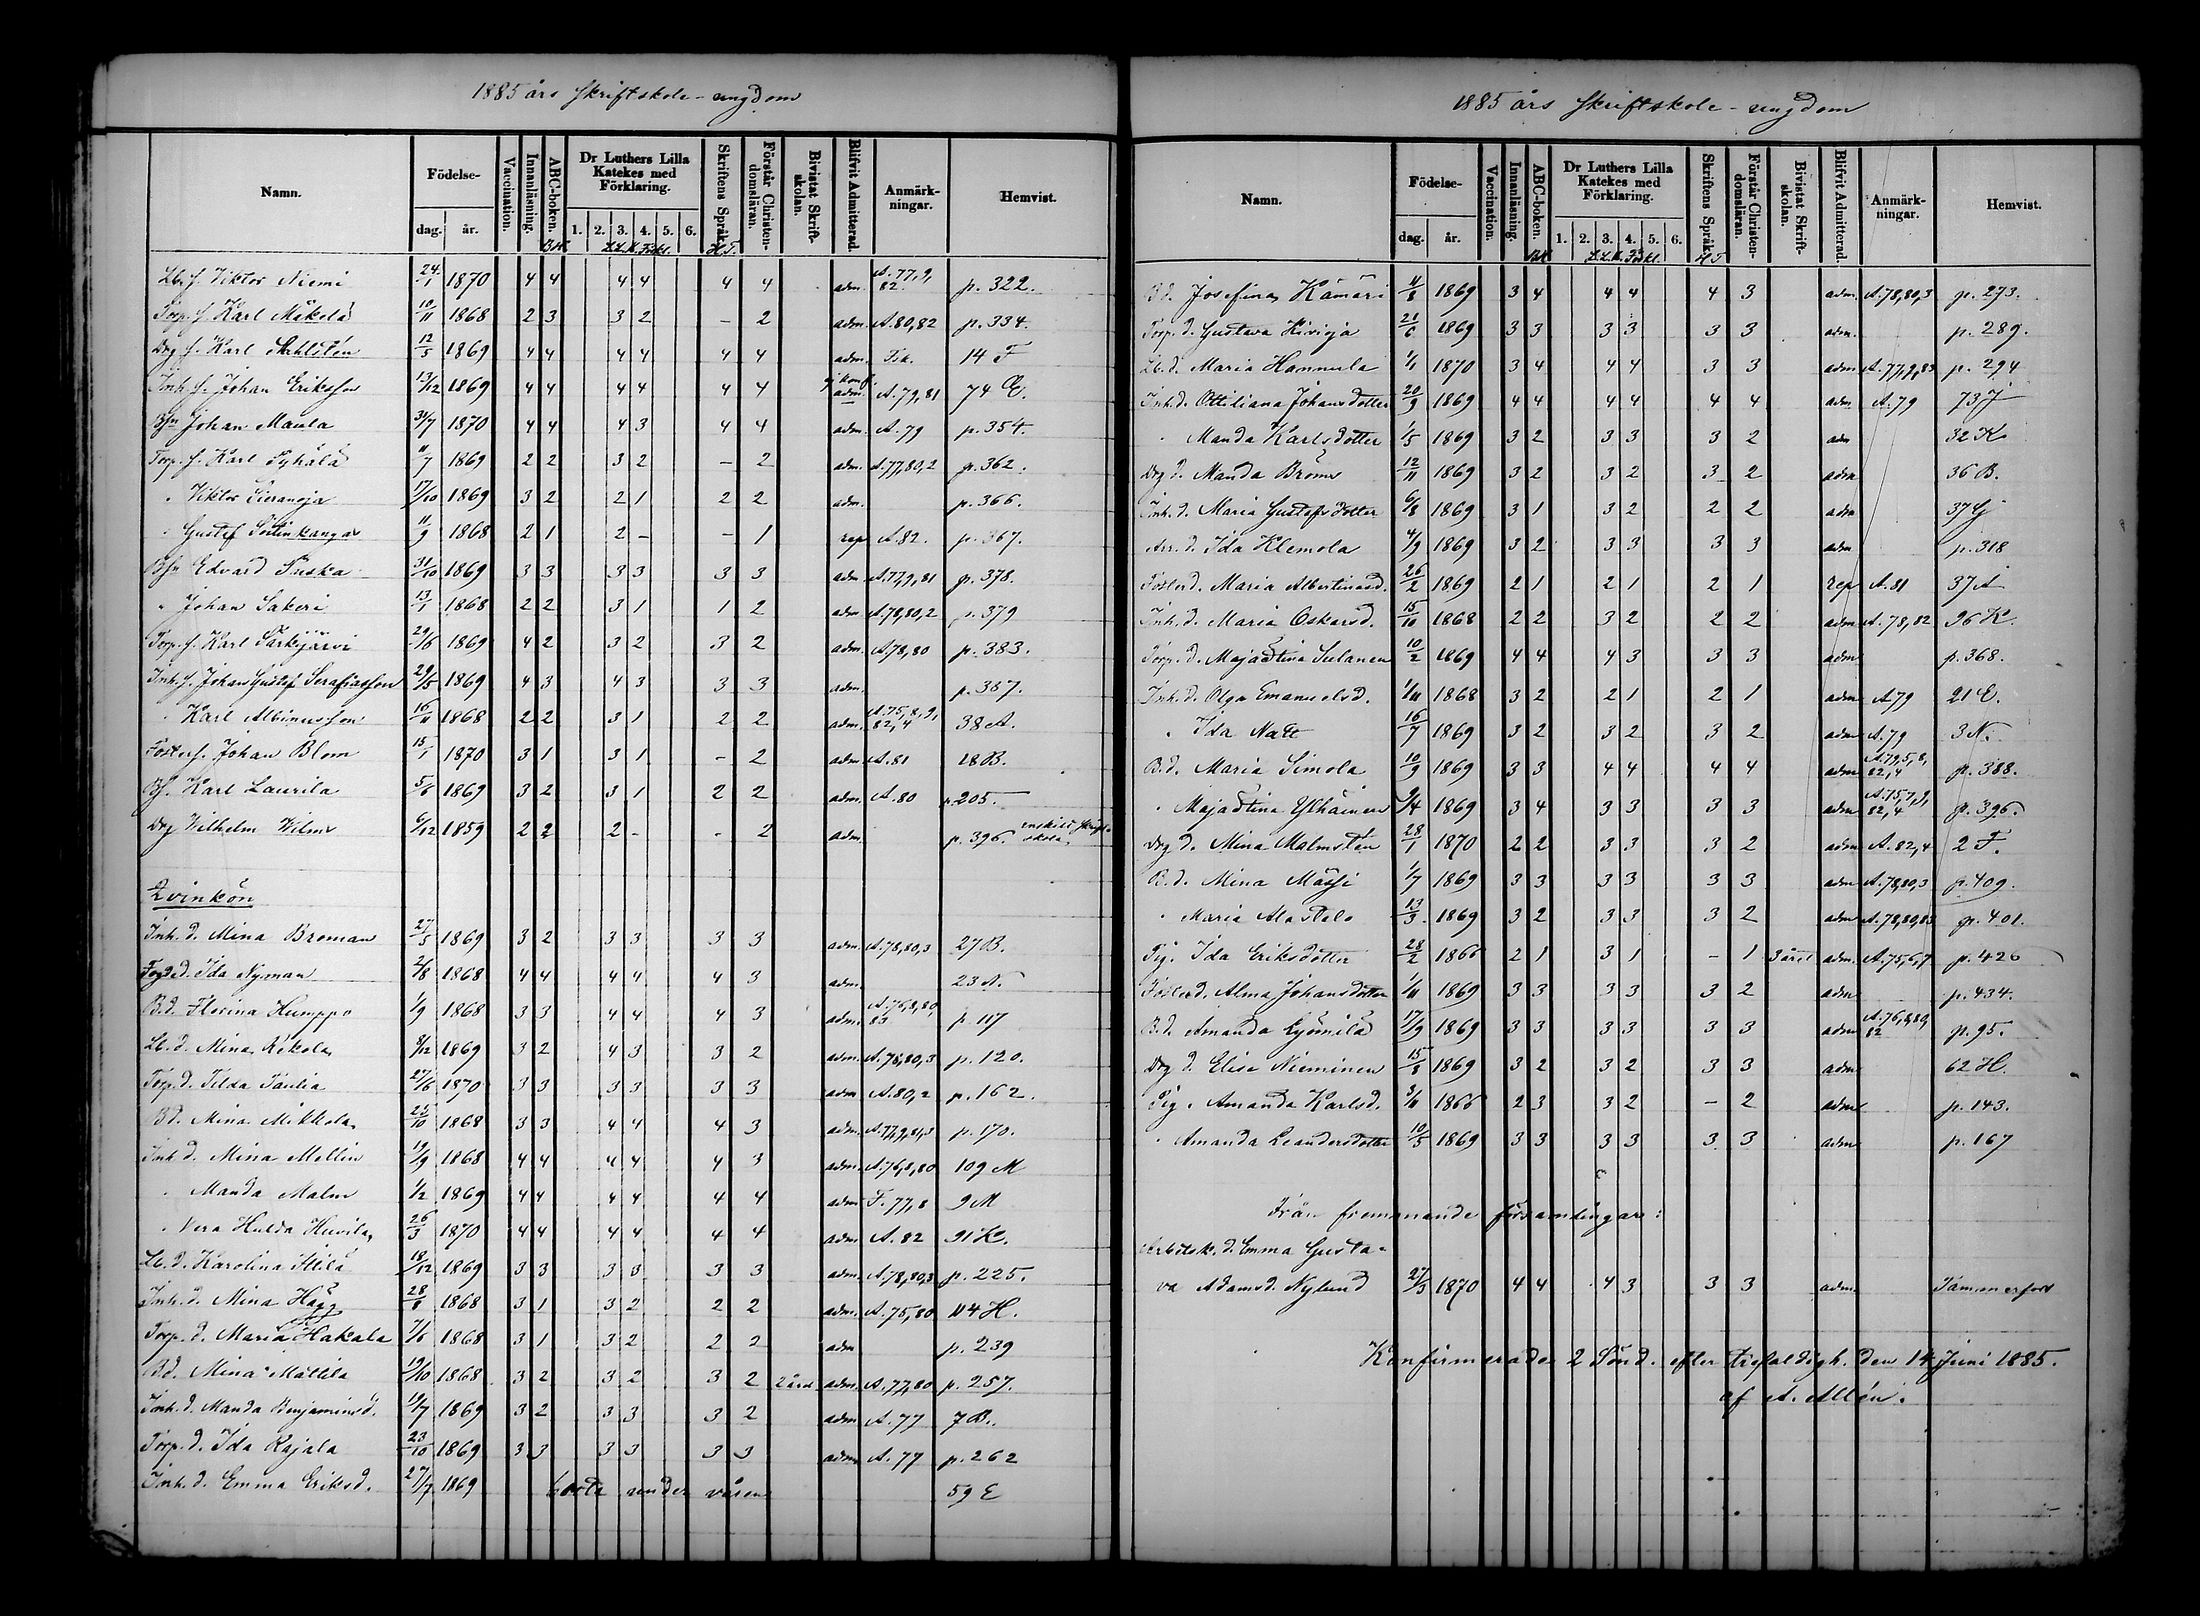 1885 års Skriftskole-ungdom
Namn. Födelse- dag. år. Vaccination. Innanläsning. ABC-boken. Dr Luthers Lilla Katekes med Förklaring. 1. 2. 3. 4. 5. 6. Skriftens Språk. Förstår Christendomsläran. Bivistat Skriftskolan. Blifvit Admitterad. Anmärkningar. Hemvist.
L.L.K. Förkl. H.S.
Lb. s. Viktor Niemi 24/1 1870 4 4 4 4 4 4 adm. A. 77, 9, 82. p. 322.
Torp. s. Karl Mäkelä 10/11 1868 2 3 3 2 - 2 adm. A. 80, 82 p. 334.
Drg s. Karl Stahlstén 12/5 1869 4 4 4 4 4 4 adm. Fsk. 14 F
Inh. s. Johan Eriksson 13/12 1869 4 4 4 4 4 4 ej konf. adm. A. 79, 81 74 Œ.
Bsn Johan Maula 31/7 1870 4 4 4 3 4 4 adm. A. 79 p. 354.
Torp. s. Karl Pyhälä 11/7 1869 2 2 3 2 - 2 adm. A. 77, 80, 2 p. 362.
" Viktor Sieranoja 17/10 1869 3 2 2 1 2 2 adm. p. 366.
" Gustef Soitinkangas 11/9 1868 2 1 2 - - 1 rep A. 82. p. 367.
Bsn Edvard Suska 31/10 1869 3 3 3 3 3 3 adm A. 77, 9, 81 p. 378.
" Johan Sakeri 13/1 1868 2 2 3 1 1 2 adm A. 78, 80, 2 p. 379
Torp. s. Karl Särkijärvi 29/6 1869 4 2 3 2 3 2 adm. A. 78, 80 p. 383.
Inh. s. Johan Gustaf Serafiasson 29/5 1869 4 3 4 3 3 3 adm. p. 387.
" Karl Albinusson 16/11 1868 2 2 3 1 2 2 adm. A. 75, 8, 9, 82, 4 38 A.
Fosters. Johan Blom 15/1 1870 3 1 3 1 - 2 adm A. 81 28 B.
Bs. Karl Laurila 5/6 1869 3 2 3 1 2 2 adm. A. 80 p. 205.
Drg Wilhelm Wilms 6/12 1859 2 2 2 - - 2 adm. p. 396. enskild skriftskola.
Qvinkön
Inh. d. Mina Broman 27/5 1869 3 2 3 3 3 3 adm. A. 78, 80, 3 27 B.
Fogde d. Ida Nyman 2/8 1868 4 4 4 4 4 3 adm. 23 N.
B.d. Florina Humppo 1/9 1868 3 3 4 4 4 3 adm. A. 76, 8, 80, 83 p. 117
Lb. d. Mina Rekola 8/12 1869 3 2 4 3 3 2 adm. A. 78, 80, 3 p. 120.
Torp. d. Tilda Paulia 27/6 1870 3 3 3 3 3 3 adm A. 80, 2 p. 162.
B.d. Mina Mikkola 25/10 1868 3 3 4 4 4 3 adm. A. 77, 9, 81, 3 p. 170.
Inh. d. Mina Mellin 19/9 1868 4 4 4 4 4 3 adm. A. 76, 8, 80 109 M
" Manda Malm 1/12 1869 4 4 4 4 4 4 adm F. 77, 8 9 M
" Vera Hulda Huvila 26/3 1870 4 4 4 4 4 4 adm A. 82 91 K.
Lb. d. Karolina Attila 18/12 1869 3 3 3 3 3 3 adm A. 78, 80, 3 p. 225.
Inh. d. Mina Hägg 28/8 1868 3 1 3 2 2 2 adm. A. 75, 80 114 H.
Torp. d. Maria Hakala 7/6 1868 3 1 3 2 2 2 adm p. 239
B.d. Mina Mattila 19/10 1868 3 2 3 2 3 2 2 året adm. A. 77, 80 p. 257.
Inh. d. Manda Benjaminsd. 19/7 1869 3 2 3 3 3 2 adm A. 77 7 B.
Torp. d. Ida Rajala 23/10 1869 3 3 3 3 3 3 adm A. 77 p. 262
Inh. d. Emma Eriksd. 27/7 1869 borta under våren 59 E
1885 års Skriftskole-ungdom
Namn. Födelse- dag. år. Vaccination. Innanläsning. ABC-boken. Dr Luthers Lilla Katekes med Förklaring. 1. 2. 3. 4. 5. 6. Skriftens Språk. Förstår Christendomsläran. Bivistat Skriftskolan. Blifvit Admitterad. Anmärkningar. Hemvist.
L.L.K. Förkl.
B.d. Josefina Kämäri 11/8 1869 3 4 4 4 4 3 adm. A. 78, 80, 3 p. 273.
Torp. d. Gustava Kivioja 21/6 1869 3 3 3 3 3 3 adm. p. 289.
Lb. d. Maria Hannula 1/1 1870 3 4 4 4 3 3 adm A. 77, 9, 83 p. 294
Inh. d. Ottiliana Johansdotter 20/9 1869 4 4 4 4 4 4 adm A. 79 73 J
" Manda Karlsdotter 1/5 1869 3 2 3 3 3 2 adm 32 K
Drg d. Manda Broms 12/11 1869 3 2 3 2 3 2 adm 36 B.
Inh. d. Maria Gustafsdotter 6/8 1869 3 1 3 2 2 2 adm 37 G
Arr. d. Ida Klemola 4/9 1869 3 2 3 3 3 3 adm p. 318
Fosterd. Maria Albertinasd. 26/2 1869 2 1 2 1 2 1 rep A. 81 37 A
Inh. d. Maria Oskarsd. 15/10 1868 2 2 3 2 2 2 adm A. 78, 82 96 K.
Torp. d. Maja Stina Sulanen 10/2 1869 4 4 4 3 3 3 adm p. 368.
Inh. d. Olga Emanuelsd. 1/11 1868 3 2 2 1 2 1 adm A 79 21 E.
" Ida Natt 16/7 1869 3 2 3 2 3 2 adm A. 79 3 N.
B.d. Maria Simola 10/9 1869 3 3 4 4 4 4 adm A. 79, 5, 8, 82, 4 p. 388.
" Maja Stina Ylhäinen 9/4 1869 3 4 3 3 3 3 adm A. 75, 7, 9, 82, 4 p. 396.
Drg d. Mina Malmstén 28/1 1870 2 2 3 3 3 2 adm A. 82, 4 2 F.
B.d. Mina Mässi 1/7 1869 3 3 3 3 3 3 adm A. 78, 80, 3 p. 409.
" Maria Alastalo 13/3 1869 3 2 3 3 3 2 adm A. 78, 80, 83 p. 401.
Pig. Ida Eriksdotter 28/2 1866 2 1 3 1 - 1 3 året adm. A. 75, 6, 7 p. 426
Fosterd. Alma Johansdotter 1/11 1869 3 3 3 3 3 2 adm p. 434.
B.d. Amanda Kyömilä 17/9 1869 3 3 3 3 3 3 adm A. 76, 8, 80, 82 p. 95.
Drg d. Elisa Nieminen 15/8 1869 3 2 3 2 3 3 adm 62 H.
Pig. Amanda Karlsd. 3/11 1866 2 3 3 2 - 2 adm p. 143.
" Amanda Leandersdotter 10/5 1869 3 3 3 3 3 3 adm p. 167
Från fremmande församlingar:
Arbetsk. d. Emma Gusta-
va Adamsd. Nylund 27/3 1870 4 4 4 3 3 3 adm. Tammerfors
Konfirmerades 2 Sönd. efter trefaldigh. den 14 Juni 1885.
af A. Allén.